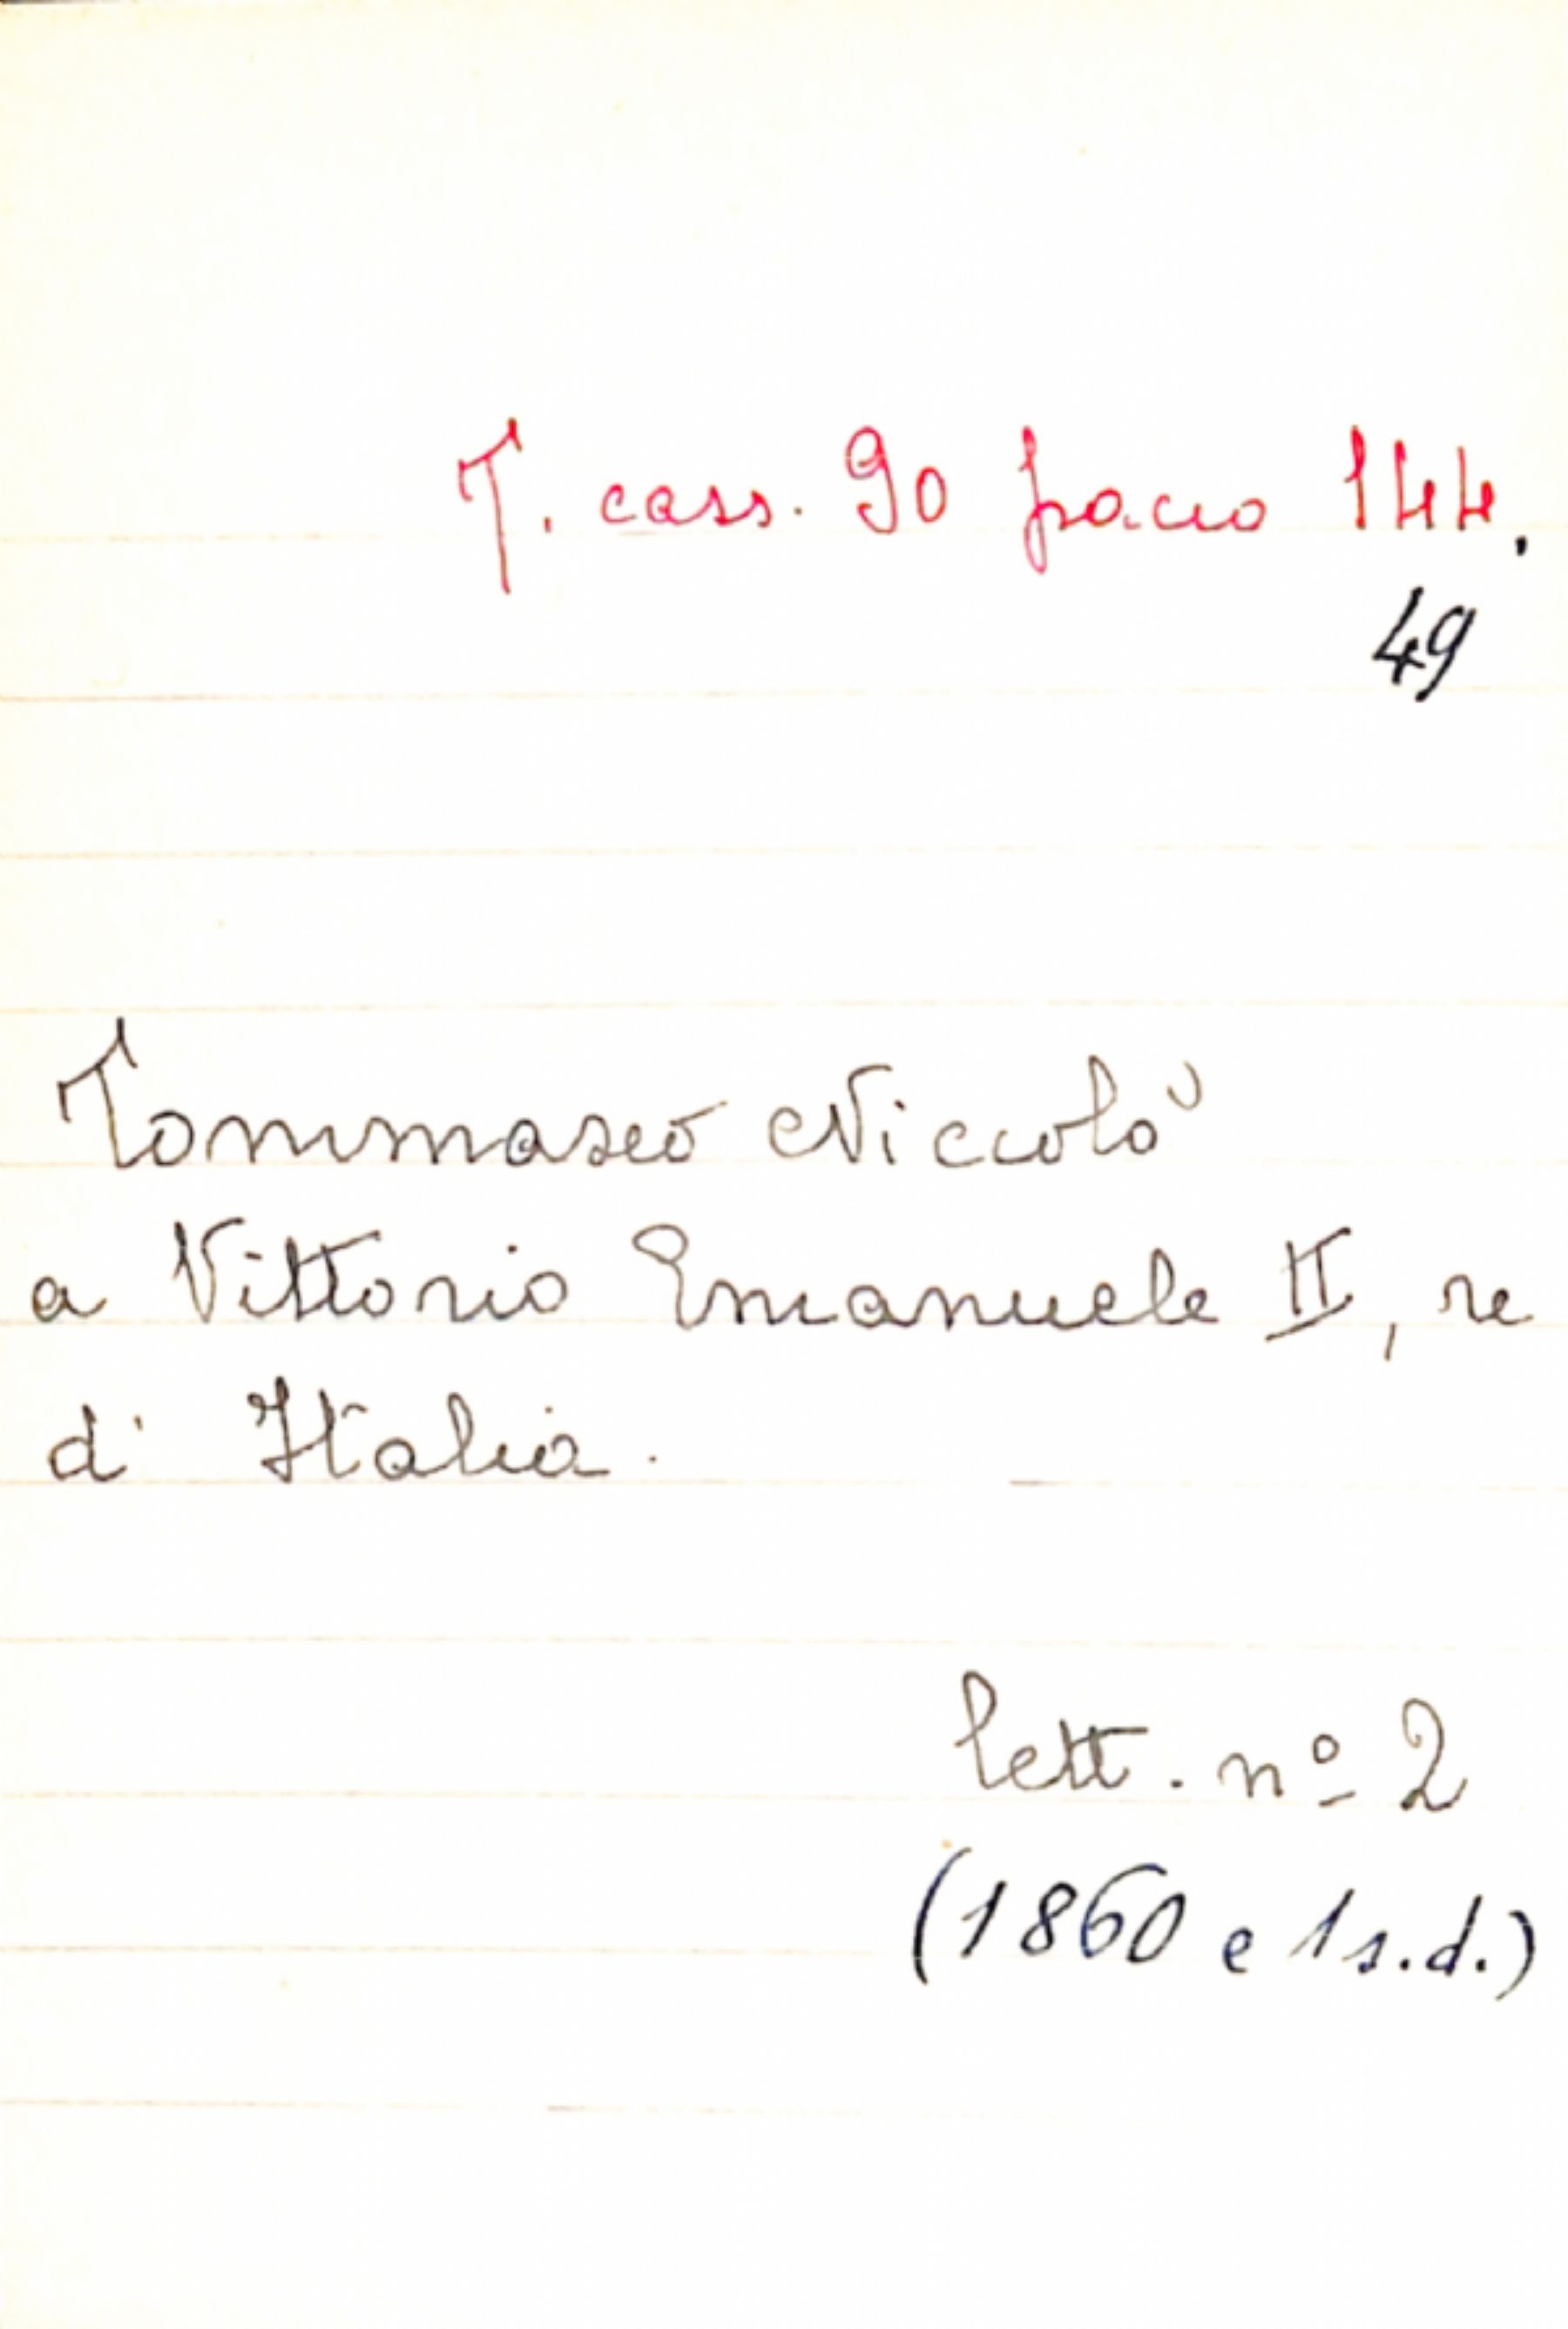 T. cass. 90 pacco 144.
49
Tommaseo Niccolò
a Vittorio Emanuele II, re
d' Italia.
lett. nº 2
(1860 e 1 s.d.)